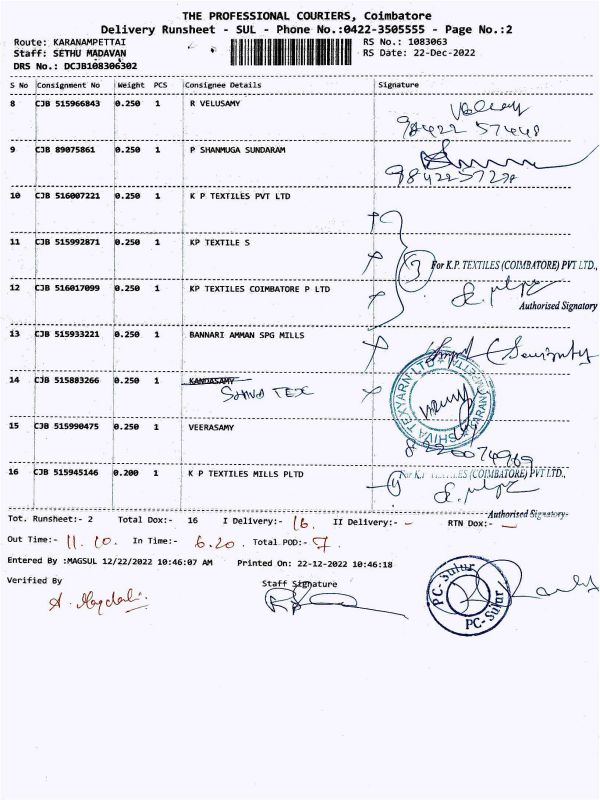 THE PROFESSIONAL COURIERS, Coimbatore
Delivery Runsheet - SUL - Phone No.:0422-3505555 - Page No.:2
Route: KARANAMPETTAI RS No.: 1083063
Staff: SETHU MADAVAN RS Date: 22-Dec-2022
DRS No.: DCJB108306302
S No Consignment No Weight PCS Consignee Details Signature
8 CJB 515966843 0.250 1 R VELUSAMY
98422 57448
9 CJB 89075861 0.250 1 P SHANMUGA SUNDARAM
10 CJB 516007221 0.250 1 K P TEXTILES PVT LTD
11 CJB 515992871 0.250 1 KP TEXTILE S
For K.P. TEXTILES (COIMBATORE) PVT LTD.,
12 CJB 516017099 0.250 1 KP TEXTILES COIMBATORE P LTD
Authorised Signatory
13 CJB 515933221 0.250 1 BANNARI AMMAN SPG MILLS
14 CJB 515883266 0.250 1 KANDASAMY
SHIVA TEX
SHIVA TEXYARN LTD
15 CJB 515990475 0.250 1 VEERASAMY
16 CJB 515945146 0.200 1 K P TEXTILES MILLS PLTD
For K.P. TEXTILES (COIMBATORE) PVT LTD.,
Authorised Signatory
Tot. Runsheet:- 2 Total Dox:- 16 I Delivery:- 16. II Delivery:- - RTN Dox:- -
Out Time:- 11.10. In Time:- 6.20. Total POD:- 7.
Entered By :MAGSUL 12/22/2022 10:46:07 AM Printed On: 22-12-2022 10:46:18
Verified By Staff Signature
PC- Sulur
PC- Sulur